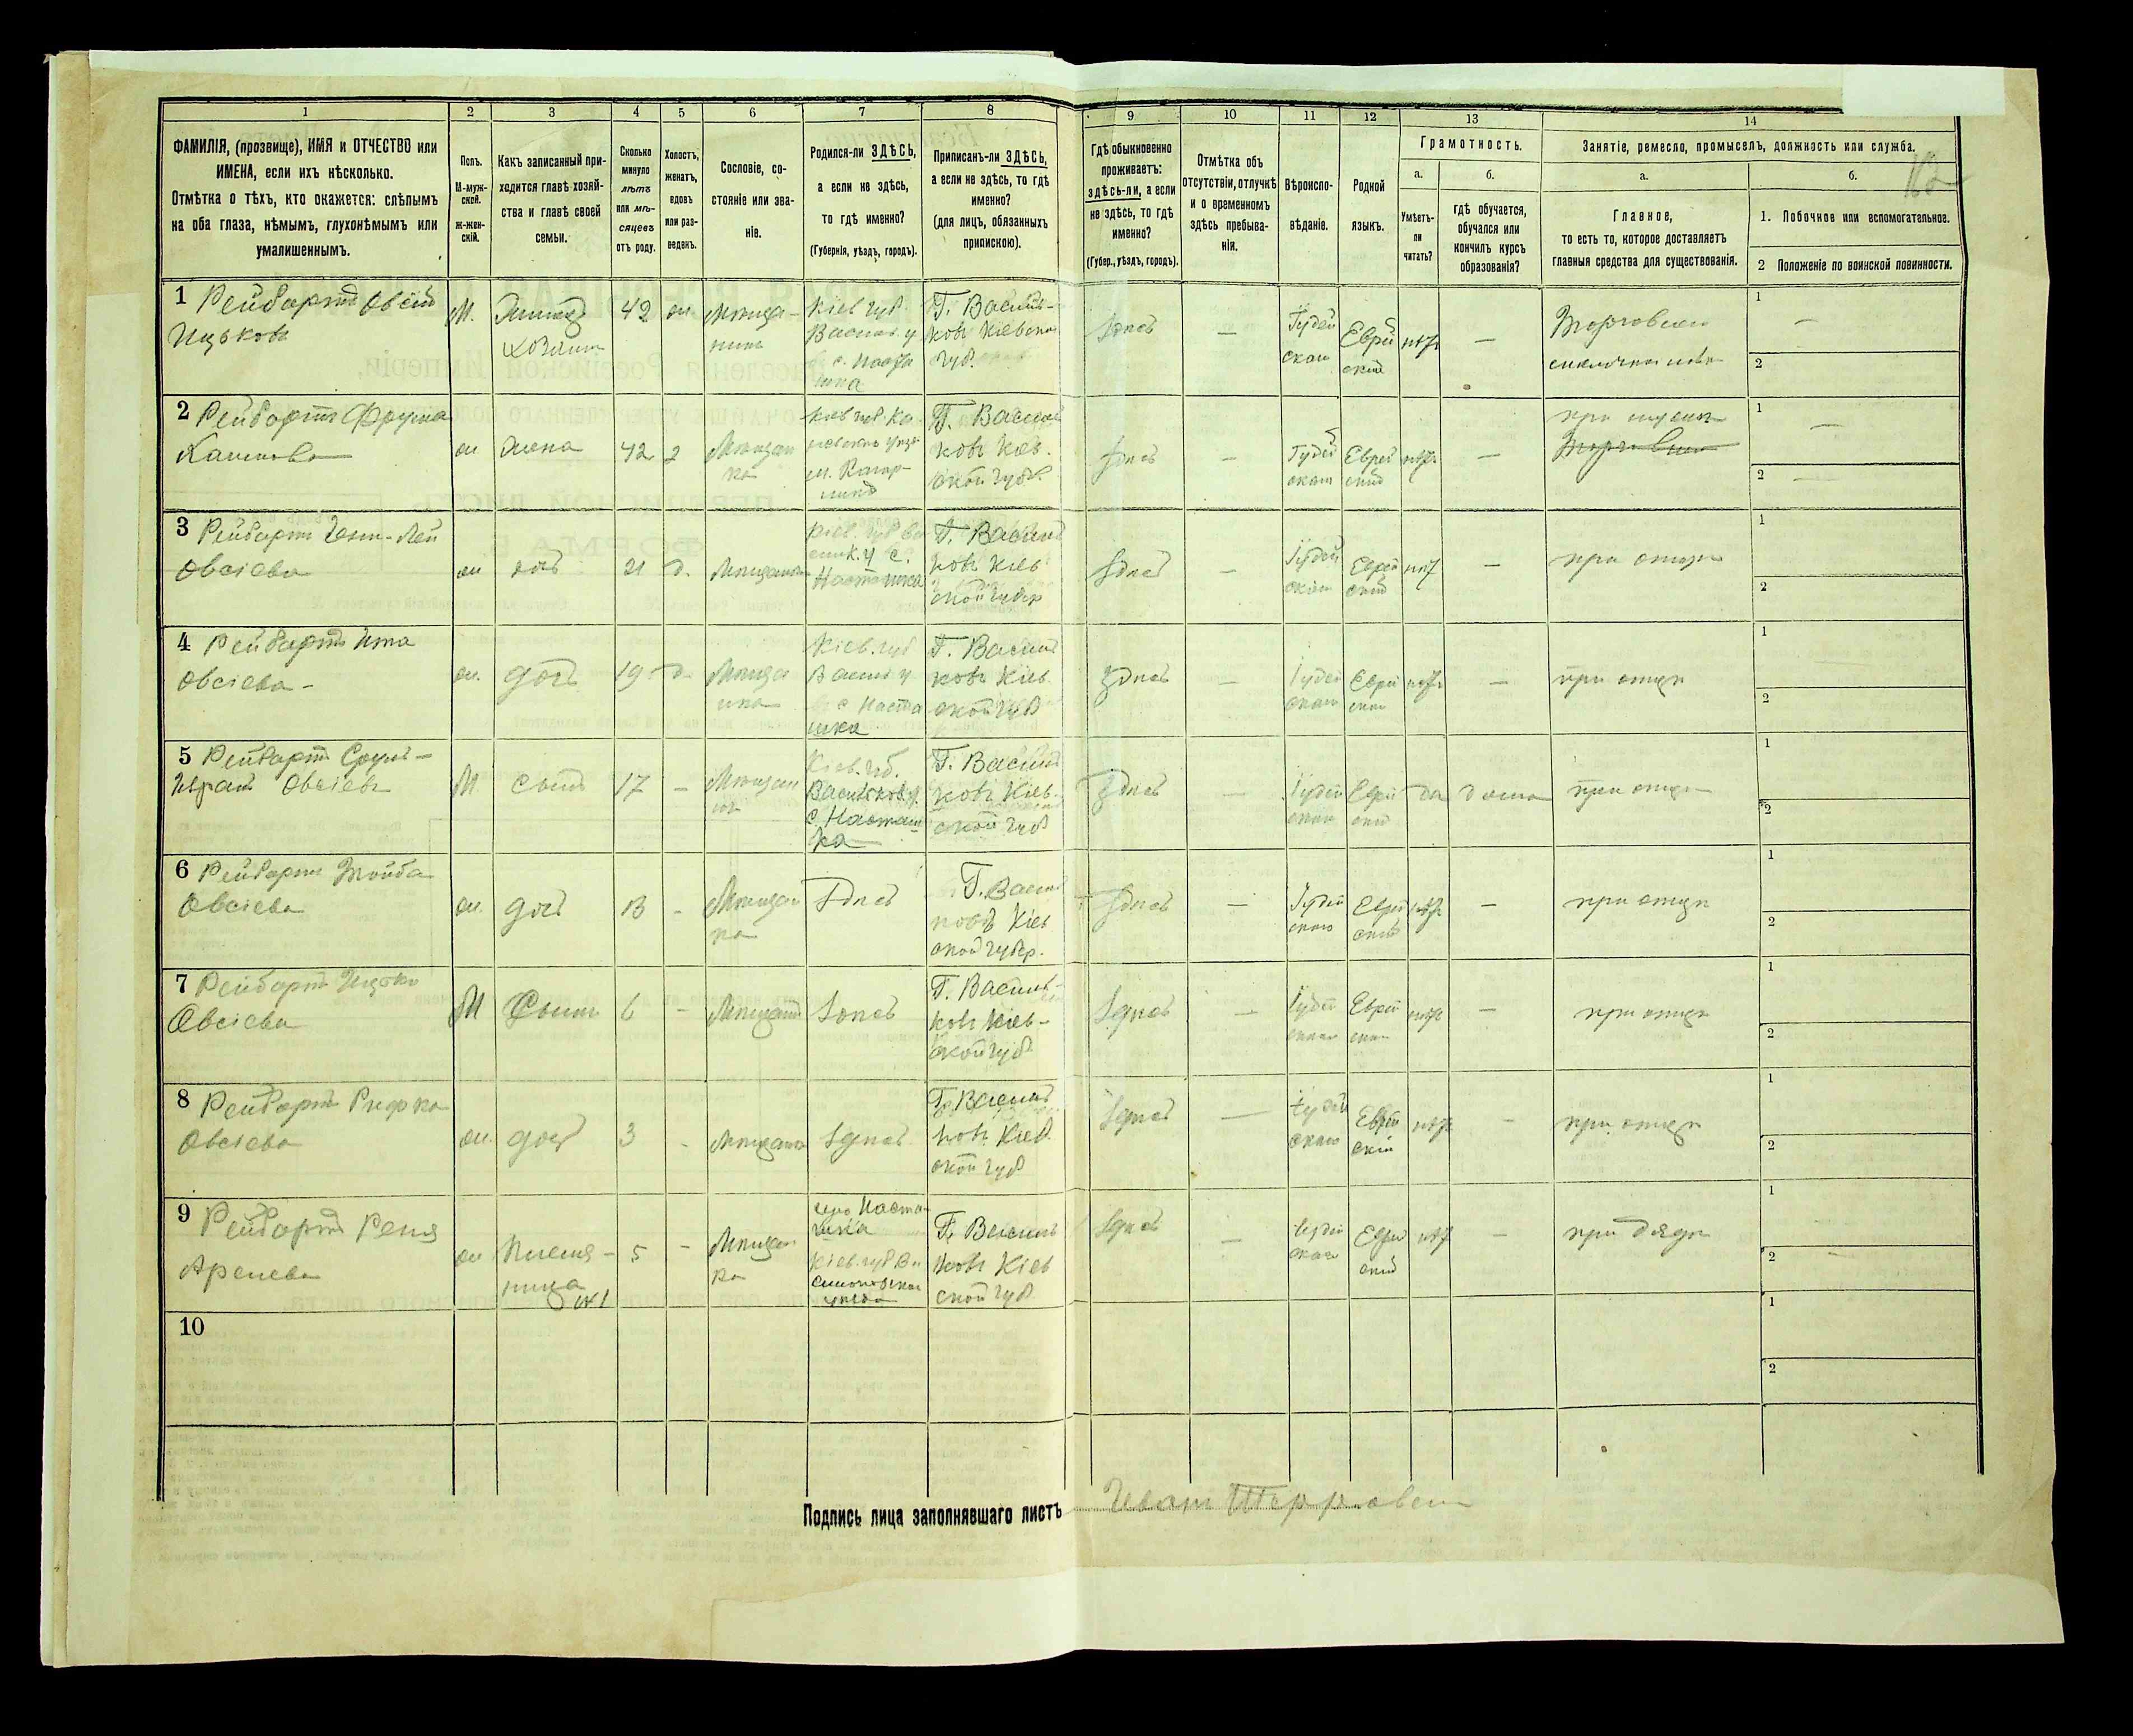 1
2
3
4
5
6
7
8
9
10
11
12
13
14
ФАМИЛІЯ, (прозвище), ИМЯ и ОТЧЕСТВО или
ИМЕНА, если ихъ нѣсколько.
Отмѣтка о тѣхъ, кто окажется: слѣпымъ
на оба глаза, нѣмымъ, глухонѣмымъ или
умалишеннымъ.
Полъ.
М-муж-
ской.
Ж-жен-
скій.
Какъ записанный при-
ходится главѣ хозяй-
ства и главѣ своей
семьи.
Сколько
минуло
лѣтъ
или мѣ-
сяцевъ
отъ роду.
Холостъ,
женатъ,
вдовъ
или раз-
веденъ.
Сословіе, со-
стояніе или зва-
ніе.
Родился-ли ЗДѢСЬ,
а если не здѣсь,
то гдѣ именно?
(Губернія, уѣздъ, городъ).
Приписанъ-ли ЗДѢСЬ,
а если не здѣсь, то гдѣ
именно?
(для лицъ, обязанныхъ
припискою).
Гдѣ обыкновенно
проживаетъ:
здѣсь-ли, а если
не здѣсь, то гдѣ
именно?
(Губер., уѣздъ, городъ).
Отмѣтка объ
отсутствіи, отлучкѣ
и о временномъ
здѣсь пребыва-
ніи.
Вѣроиспо-
вѣданіе.
Родной
языкъ.
Грамотность.
а.
Умѣетъ-
ли
читать?
б.
гдѣ обучается,
обучался или
кончилъ курсъ
образованія?
Занятіе, ремесло, промыселъ, должность или служба.
а.
Главное,
то есть то, которое доставляетъ
главныя средства для существованія.
б.
1. Побочное или вспомогательное.
2 Положеніе по воинской повинности.
1 Рейбартъ Овсій
Ицьковъ
М.
хозяинъ
42
Кіев губ.
Васильк у
с. Наста
шка
Г. Василь-
ковъ Кіевской
губ.
здѣсь
—
Іудей
ское
Еврей
скій
нѣтъ
—
1
—
2
2 Рейбартъ Фрума
жена
42
Мѣщан
ка
Г. Василь
ковъ Кіев.
ской губ.
здѣсь
—
Іудей
ское
Еврей
скій
нѣтъ
—
при мужѣ
1
—
2
3 Рейбартъ
Овсіева
дочь
21
д.
Мѣщанка
Кіев. губ Ва
сильк. у с.
Насташка
Г. Василь
ковъ Кіев
ской губер
здѣсь
—
Іудей
ское
Еврей
скій
нѣтъ
—
при отцѣ
1
2
4 Рейбартъ Ита
Овсіева
дочь
19
д.
Мѣщан
ка
Кіев. губ
Васильк у
с Наста
шка
Г. Василь
ковъ Кіев.
ской губ
здѣсь
—
Іудей
ское
Еврей
скій
нѣтъ
—
при отцѣ
1
2
5 Рейбартъ Сруль-
Овсіевъ
М
сынъ
17
—
Мѣщан
инъ
Кіев. губ.
Васильков. у.
с. Насташ
ка
Г. Василь
ковъ Кіев-
ской губ
здѣсь
Іудей
ское
Еврей
скій
да
дома
при отцѣ
1
2
6 Рейбартъ Тойба
Овсіева
дочь
13
-
Мѣщан
ка
здѣсь
Г. Василь
ковъ Кіев
ской губер.
здѣсь
—
Іудей
ское
Еврей
скій
нѣтъ
—
при отцѣ
1
2
7 Рейбартъ Ицько
Овсіевъ
М
Сынъ
6
-
Мѣщанинъ
здѣсь
Г. Василь-
ковъ Кіев-
ской губ
здѣсь
—
Іудей
ское
Еврей
скій
нѣтъ
—
при отцѣ
1
2
8 Рейбартъ Рифка
Овсіева
дочь
3
-
Мѣщанка
здѣсь
Г. Василь
ковъ Кіев.
ской губ
здѣсь
—
Іудей
ское
Еврей
скій
нѣтъ
-
при отцѣ
1
2
9 Рейбартъ
Племя-
ница
5
-
Мѣщан
ка
село Наста-
шка
Кіев. губ Ва
сильковскаго
уѣзда
Г. Василь
ковъ Кіев
ской губ
здѣсь
—
Іудей
ское
Еврей
скій
нѣтъ
—
при дядѣ
1
2
10
1
2
Подпись лица заполнявшаго листъ
Иванъ